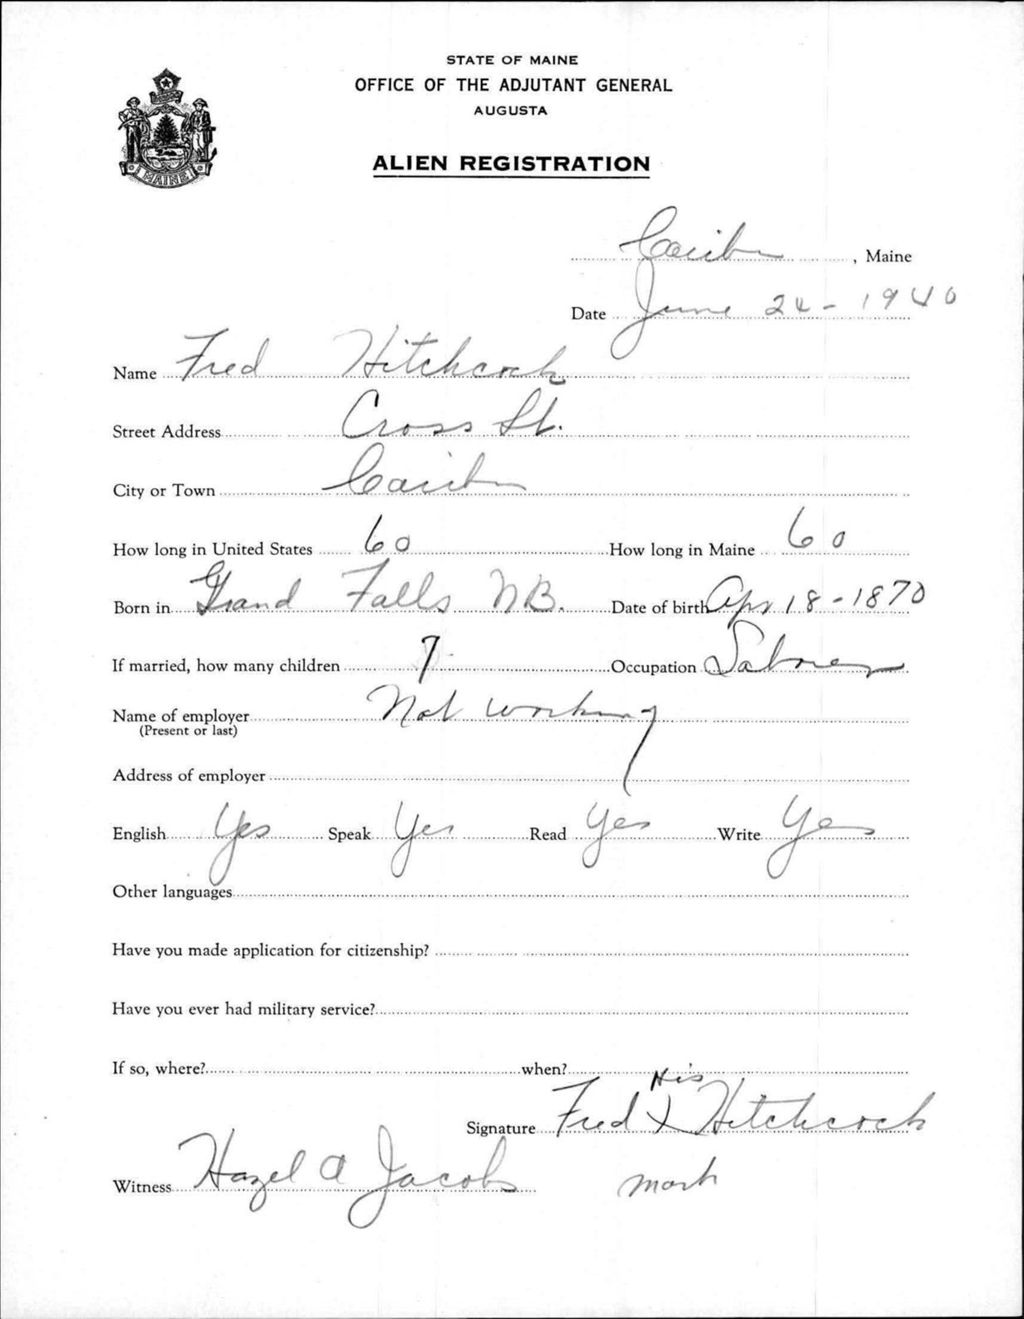 STATE OF MAINE
OFFICE OF THE ADJUTANT GENERAL
AUGUSTA
ALIEN REGISTRATION
MAINE
Caribou, Maine
Date June 24-1940
Name Fred Hitchcock
Street Address Cross St.
City or Town Caribou
How long in United States 60 How long in Maine 60
Born in Grand Falls NB. Date of birth Apr 18-1870
If married, how many children 7 Occupation Laborer
Name of employer Not working
(Present or last)
Address of employer
English Yes Speak Yes Read Yes Write Yes
Other languages
Have you made application for citizenship?
Have you ever had military service?
If so, where? when?
His
Signature Fred X Hitchcock
Witness Hazel A Jacobs mark